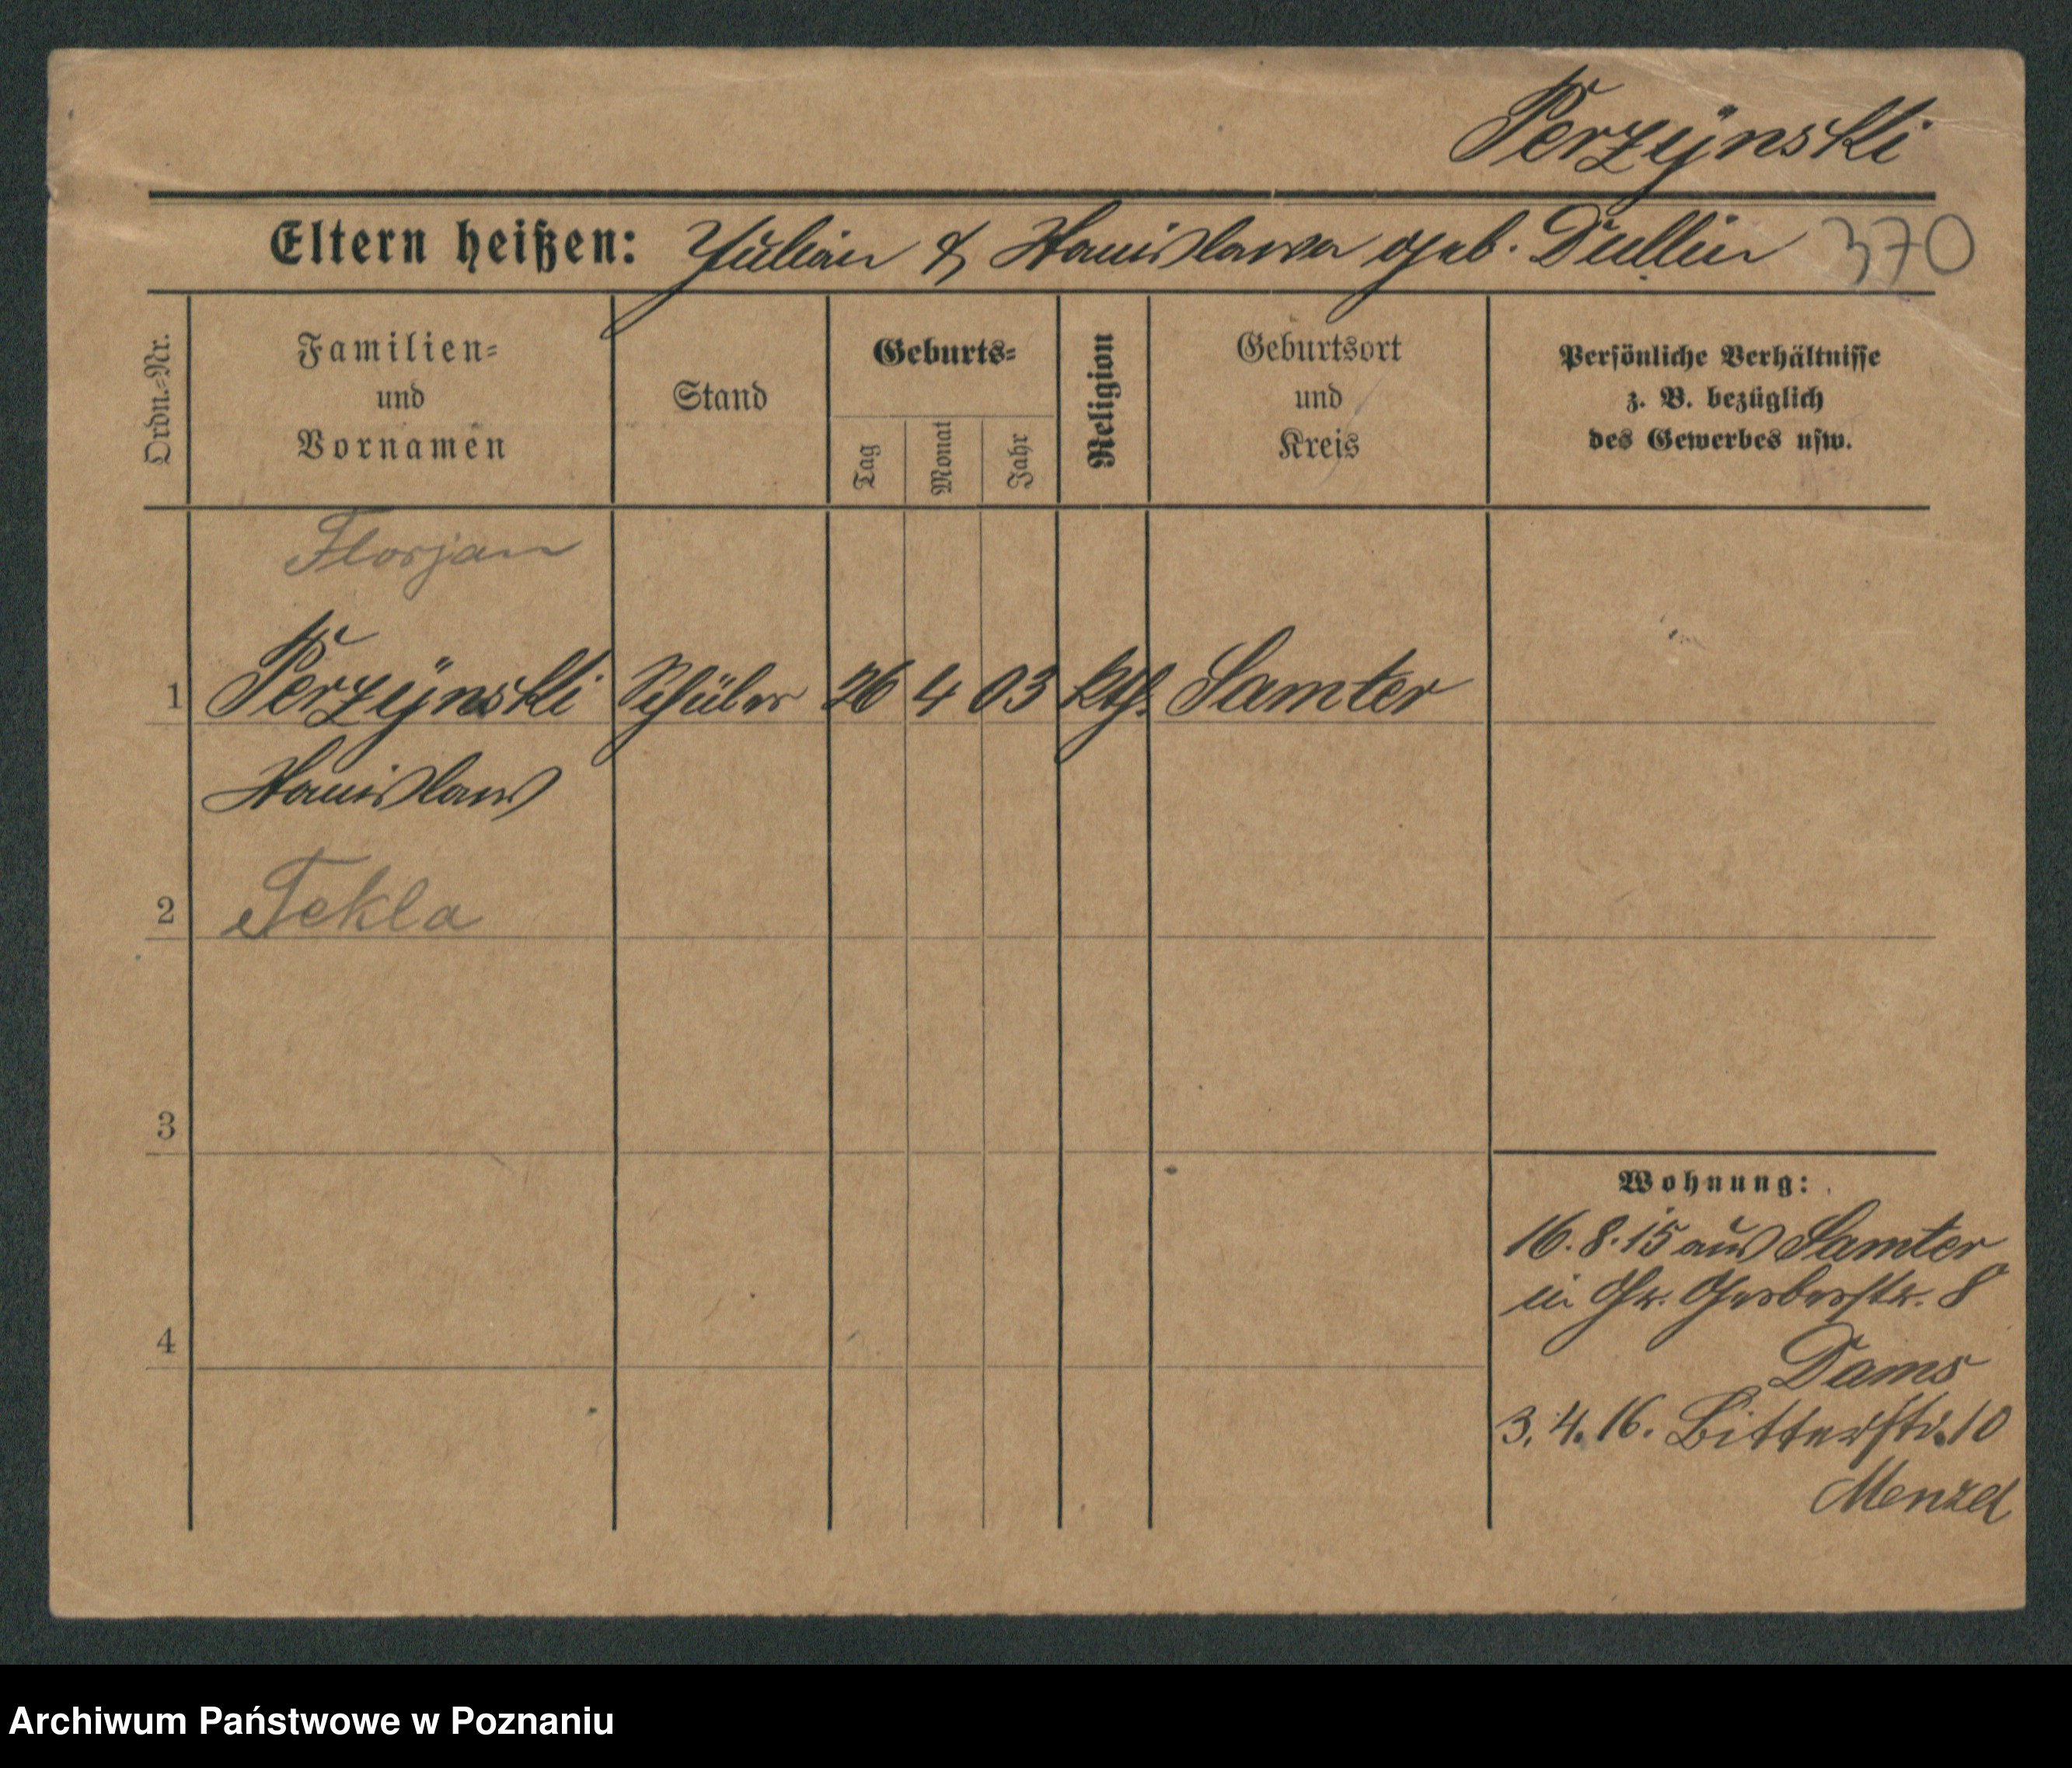 Perzÿnski
Eltern heißen: Julian & Stanislawa geb. Dullin 370
Ordn.-Nr.
Familien-
und
Vornamen
Stand
Geburts-
Tag
Monat
Jahr
Religion
Geburtsort
und
Kreis
Persönliche Verhältnisse
z. B. bezüglich
des Gewerbes usw.
Florjan
1 Perzÿnski Schüler 26 4 03 kth. Samter
Stanislaus
2 Tekla
3
4
Wohnung:
16.8.15 aus Samter
in Gr. Gerberstr. 8
Dams
3.4.16. Bitterstr. 10
Menzel
Archiwum Państwowe w Poznaniu